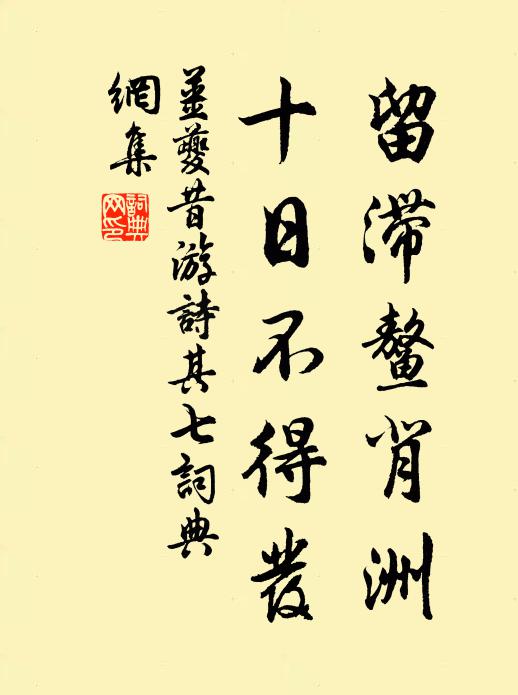 留滯鰲背洲
十日不得發
薑夔昔游詩其七詞典
網集
詞典
网印